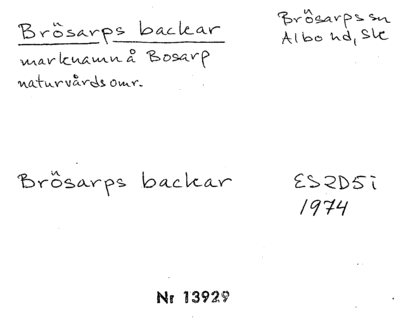 Brösarps backar
Brösarps sn
Albo hd, Sk
marknamn å Bosarp
naturvårdsomr.
Brösarps backar
ES2D5i
1974
Nr 13929